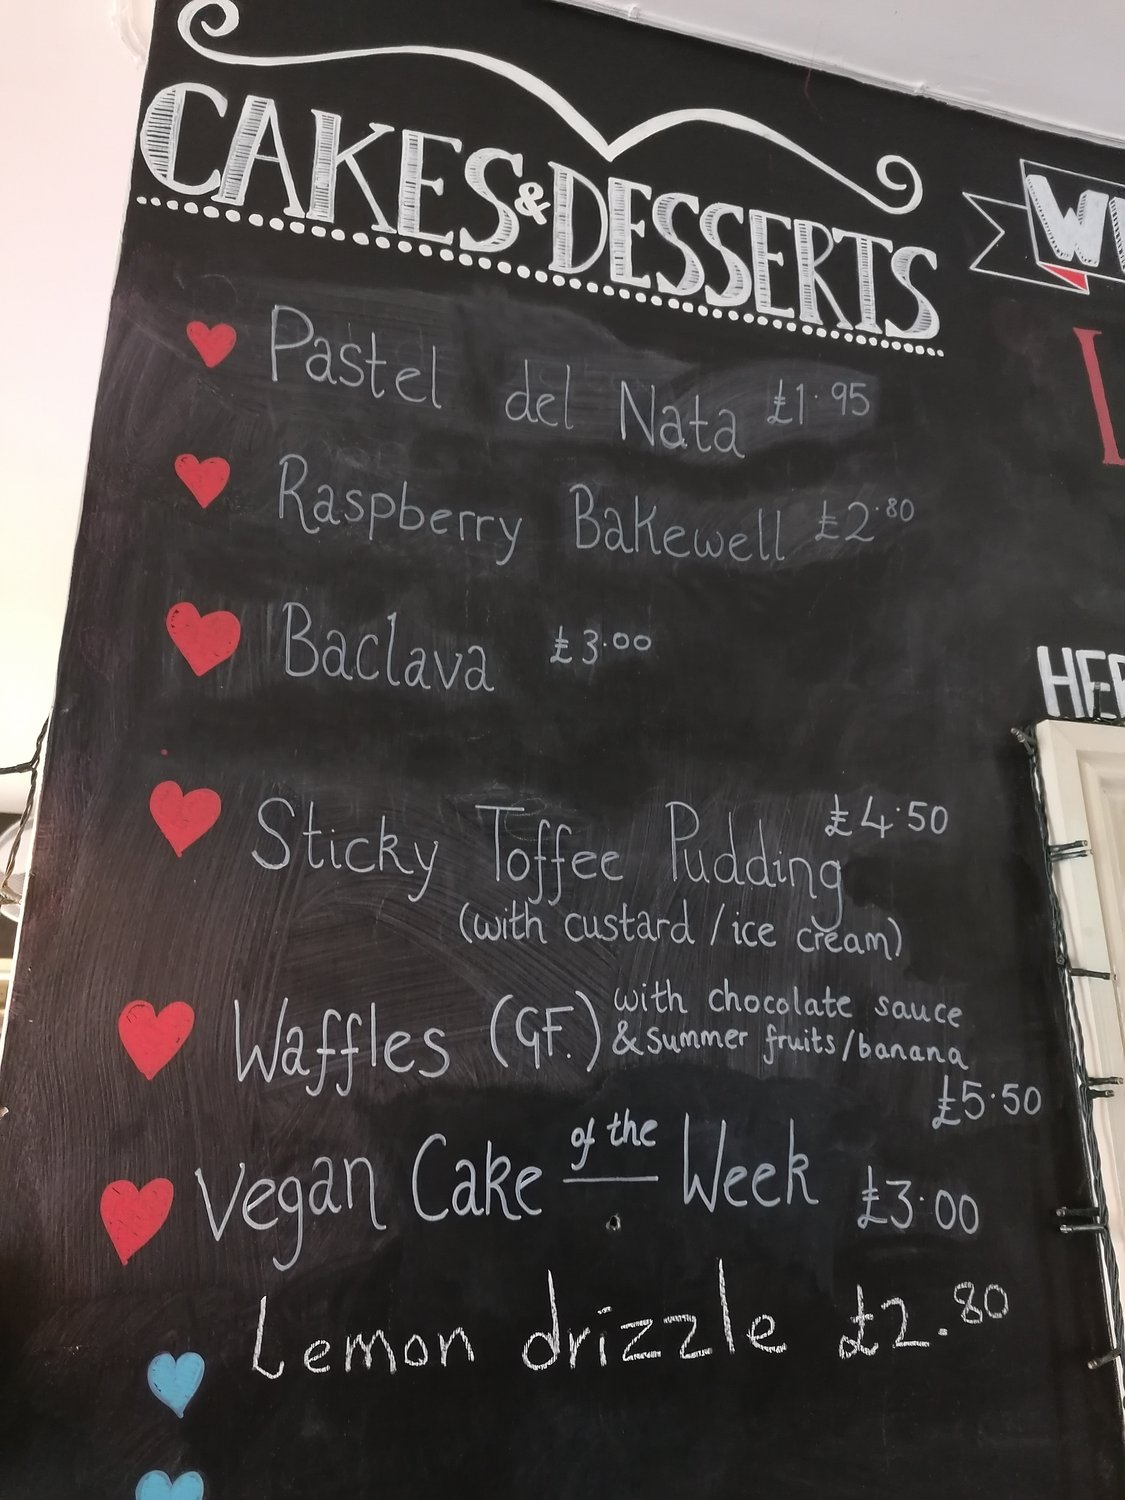 CAKES & DESSERTS
Pastel del Nata £1.95
Raspberry Bakewell £2.80
Baclava £3.00
Sticky Toffee Pudding £4.50
(with custard / ice cream)
Waffles (GF.) with chocolate sauce
& summer fruits/banana
£5.50
Vegan Cake of the Week £3.00
Lemon drizzle £2.80